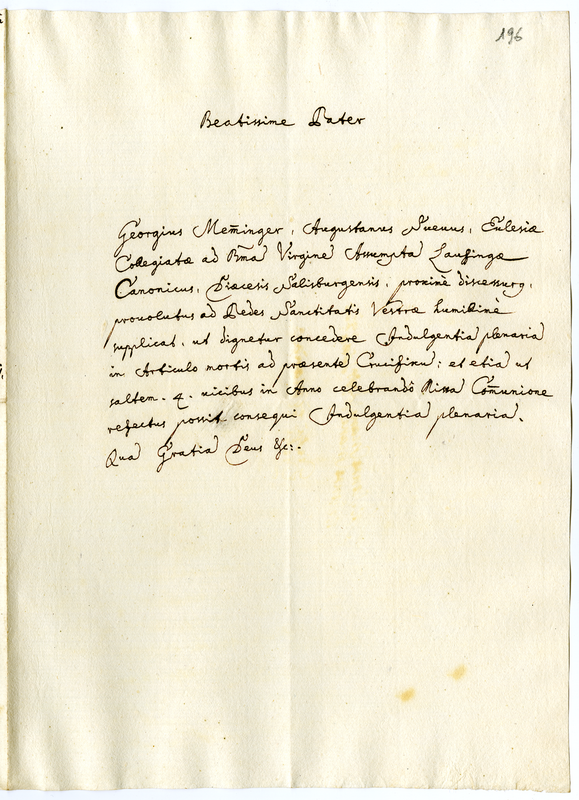 196
Beatissime Pater
Georgius Mem̄inger, Augustanus Suevus, Eulesiæ
Collegiatæ ad Bm̄a Virginē Assumptā Lauffingæ
Canonicus, Diæcesis Salisburgensis, proximè discessurꝯ,
provolutus ad Pedes Sanctitatis Vestræ humilimè
supplicat, ut dignetur concedere Indulgentiā plenariā
in Articulo mortis ad præsentē Crucifixū: et etiā ut
saltem. 4. vicibus in Anno celebrandô Missā Com̄unione
refectus possit consequi Indulgentiā plenariā.
Quā Gratiā Deus &c:.